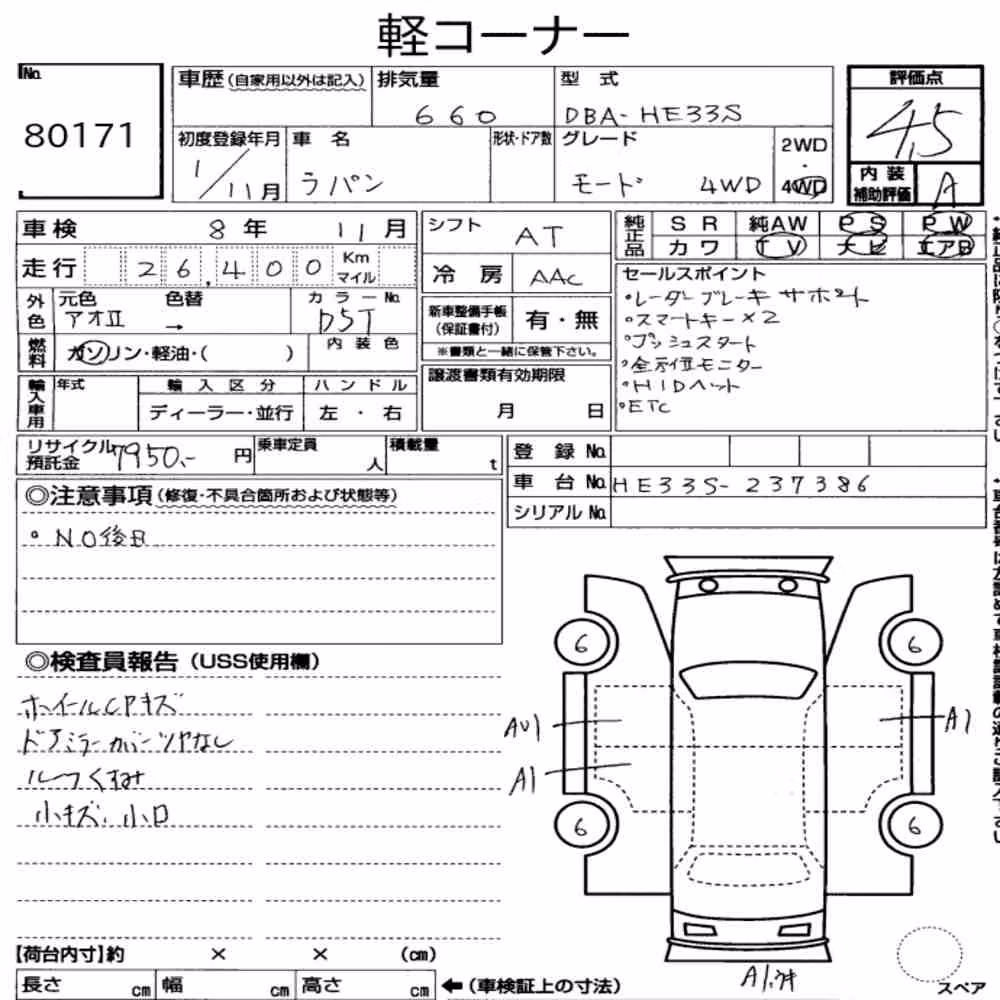 軽コーナー
No.
80171
車歴(自家用以外は記入)
排気量
660
型 式
DBA-HE33S
評価点
4.5
初度登録年月
1/11月
車 名
ラパン
形状・ドア数
グレード
モード 4WD
2WD
・
4WD
内装
補助評価
A
車検 8年 11月
走行 26,400 Km
マイル
外色
元色
アオⅡ
色替
→
カラーNo.
D5T
燃料
ガソリン・軽油・( )
内装色
輸入車用
年式
輸入区分
ディーラー・並行
ハンドル
左 ・ 右
シフト AT
冷 房 AAC
新車整備手帳
(保証書付)
有・無
※書類と一緒に保管下さい。
譲渡書類有効期限
月 日
純正品
SR 純AW PS PW
カワ TV ナビ エアB
セールスポイント
・レーダーブレーキサポート
・スマートキー×2
・プッシュスタート
・全方位モニター
・HIDヘット
・ETC
リサイクル
預託金
7950.- 円
乗車定員
人
積載量
t
登 録 No.
車 台 No. HE33S-237386
シリアル No.
◎注意事項(修復・不具合箇所および状態等)
・NO後日
◎検査員報告(USS使用欄)
ホイールCPキズ
ドアミラーカバーツヤなし
ルーフくすみ
小キズ、小凹
6
6
AU1
A1
A1
6
6
【荷台内寸】約 × × (cm)
長さ cm
幅 cm
高さ cm
←(車検証上の寸法)
スペア